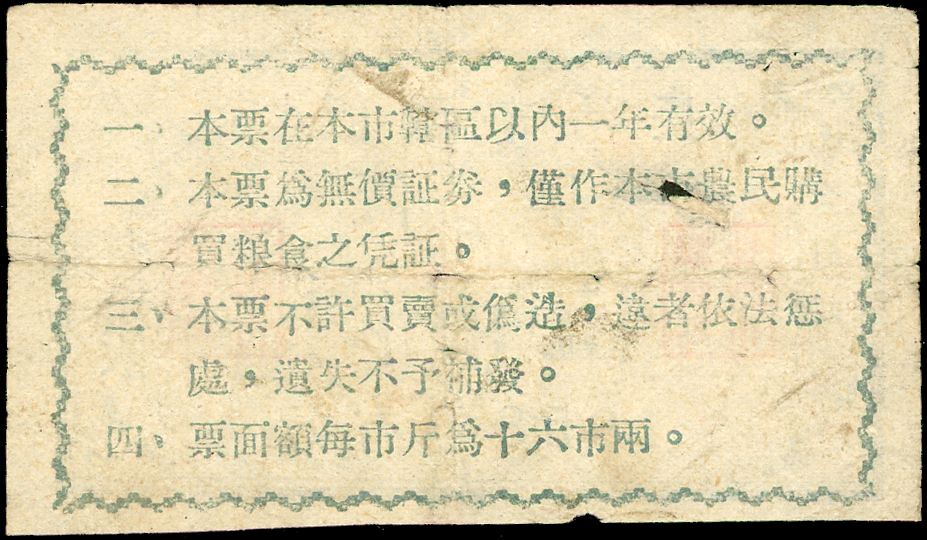 一、本票在本市轄區以內一年有效。
二、本票爲無價証券，僅作本市農民購
買粮食之凭証。
三、本票不許買賣或僞造，違者依法惩
處，遺失不予補發。
四、票面額每市斤爲十六市兩。